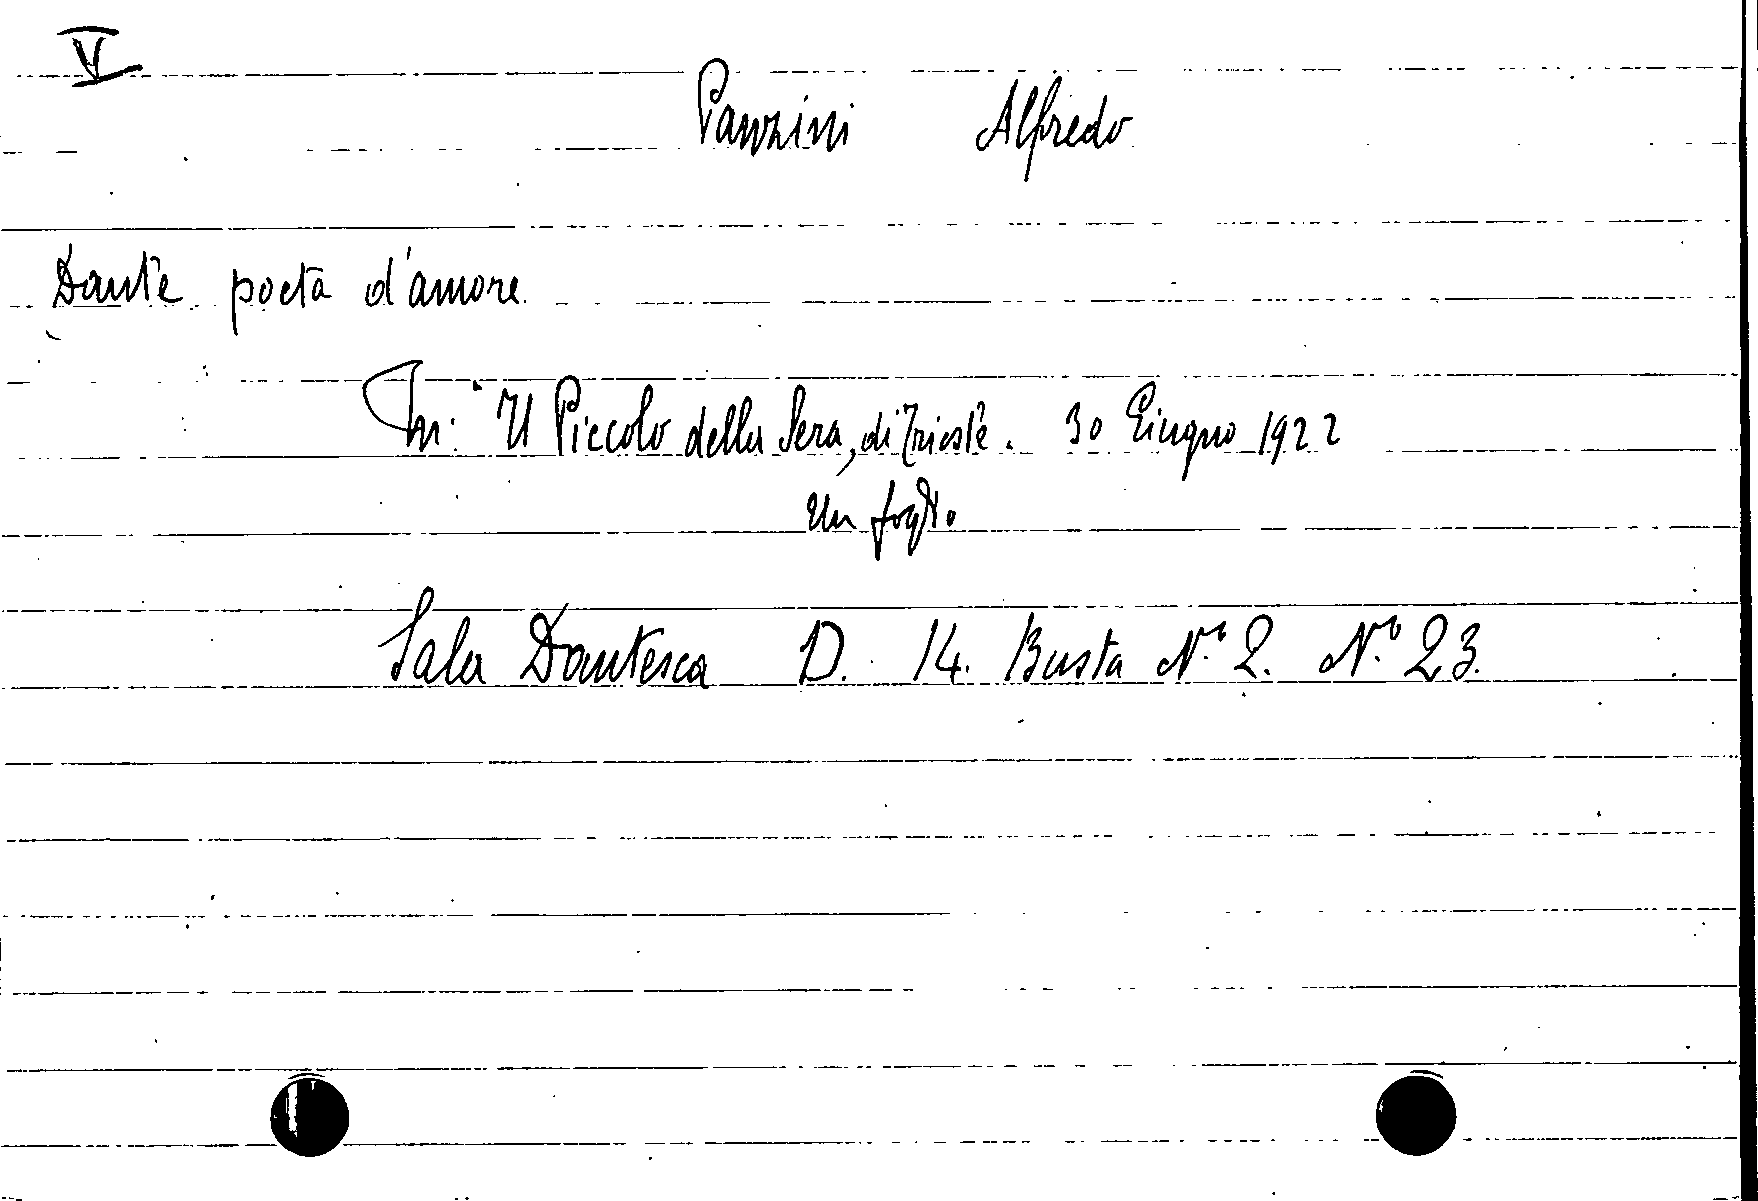 V
Panzini Alfredo
Dante poeta d'amore
In: "Il Piccolo della Sera, di Trieste. 30 Giugno 1922
un foglio
Sala Dantesca D. 14. Busta N.o 2. N.o 23.